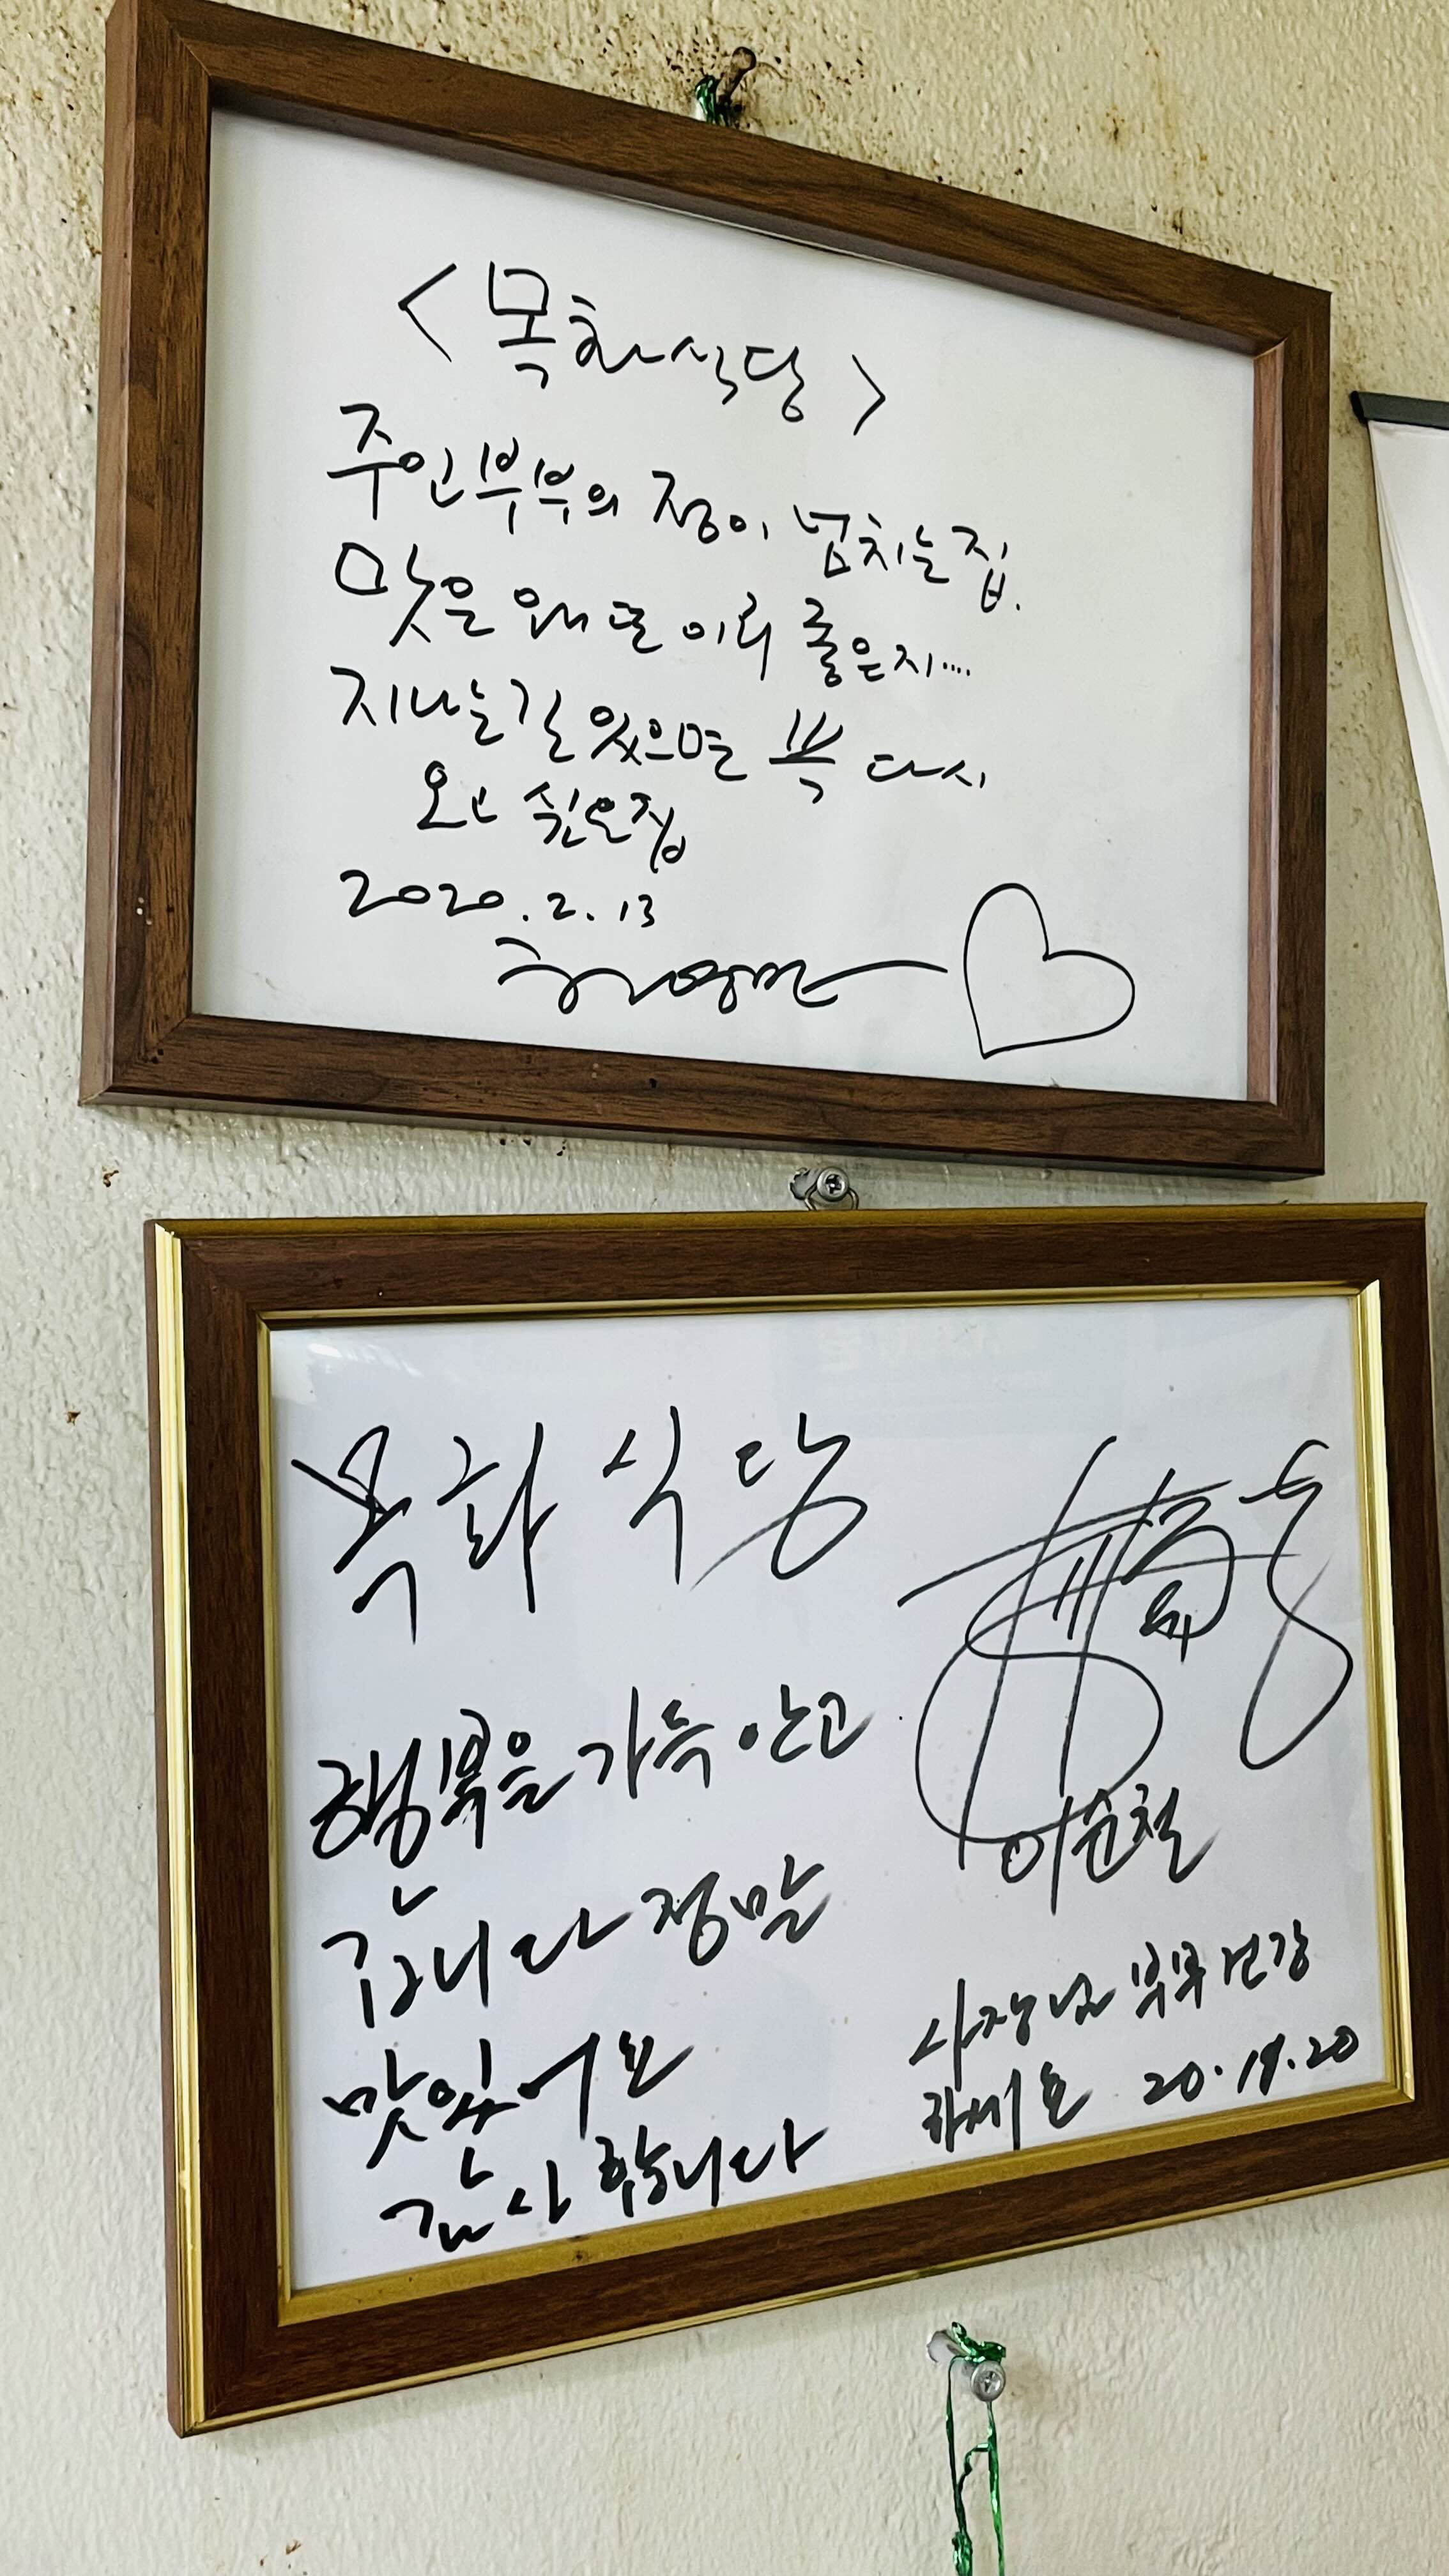 <목화식당>
주인부부의 정이 넘치는 집.
맛은 왜 또 이리 좋은지....
지나는길 있으면 꼭 다시
오고 싶은집
2020.2.13
허영만
목화 식당
행복을 가득 안고
갑니다 정말
맛있어요
감사합니다
이순철
사장님 부부 건강
하세요 20.19.20